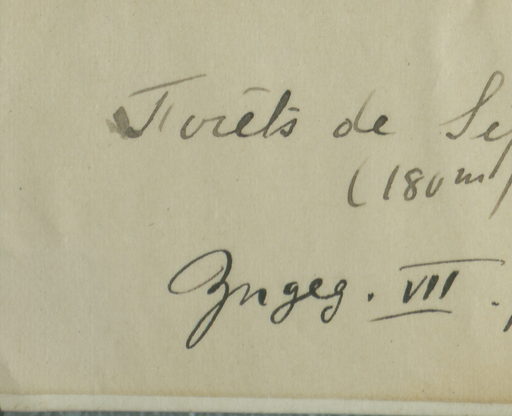 Forêts de Se
(180m)
Zngeg. VII.